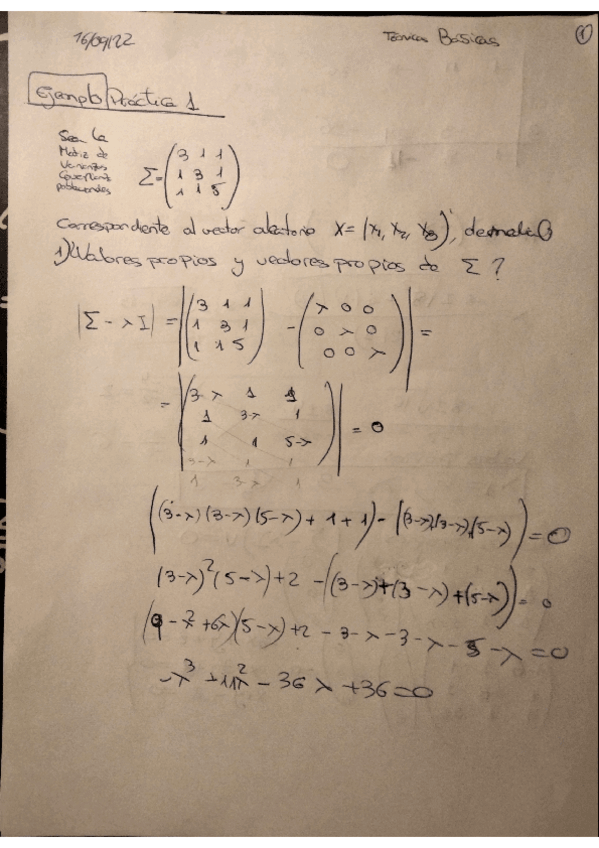 16/09/22 Técnicas Básicas 1
Ejemplo Práctica 1
Sea la
Matriz de
Varianzas
Covarianz
poblacionales
Σ = (3 1 1
1 3 1
1 1 5)
Correspondiente al vector aleatorio X = (X1, X2, X3)',
1) Valores propios y vectores propios de Σ?
|Σ - λI| = |(3 1 1 - (λ 0 0
1 3 1 0 λ 0
1 1 5) 0 0 λ)| =
= |(3-λ 1 1
1 3-λ 1
1 1 5-λ)| = 0
3-λ 1 1
1 3-λ 1
((3-λ)(3-λ)(5-λ) + 1 + 1) - ((3-λ)(3-λ)(5-λ)) = 0
(3-λ)²(5-λ) + 2 - ((3-λ) + (3-λ) + (5-λ)) = 0
(9 - λ² + 6λ)(5-λ) + 2 - 3 - λ - 3 - λ - 5 - λ = 0
-λ³ + 11λ² - 36λ + 36 = 0